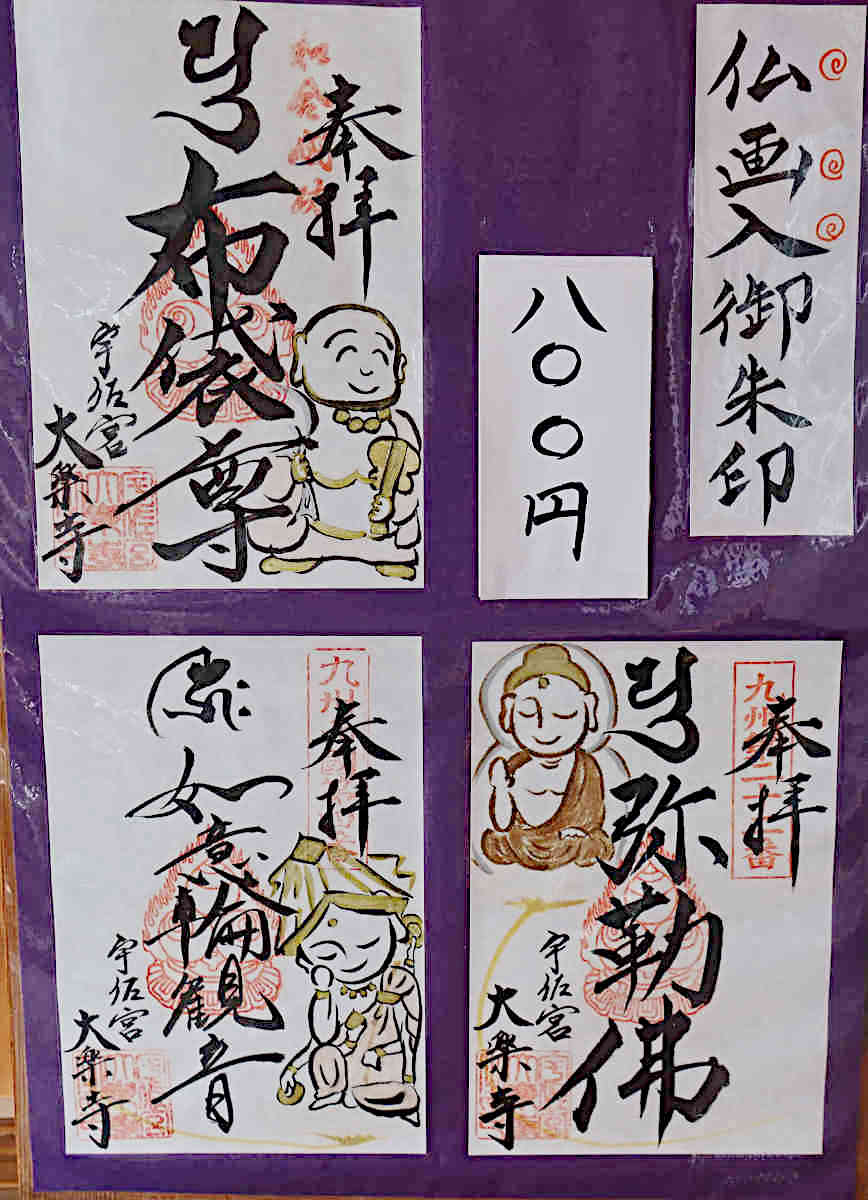 仏画入御朱印
八〇〇円
奉拝
布袋尊
宇佐宮
大楽寺
九州
奉拝
弥勒佛
宇佐宮
大楽寺
九州
奉拝
如意輪観音
宇佐宮
大楽寺